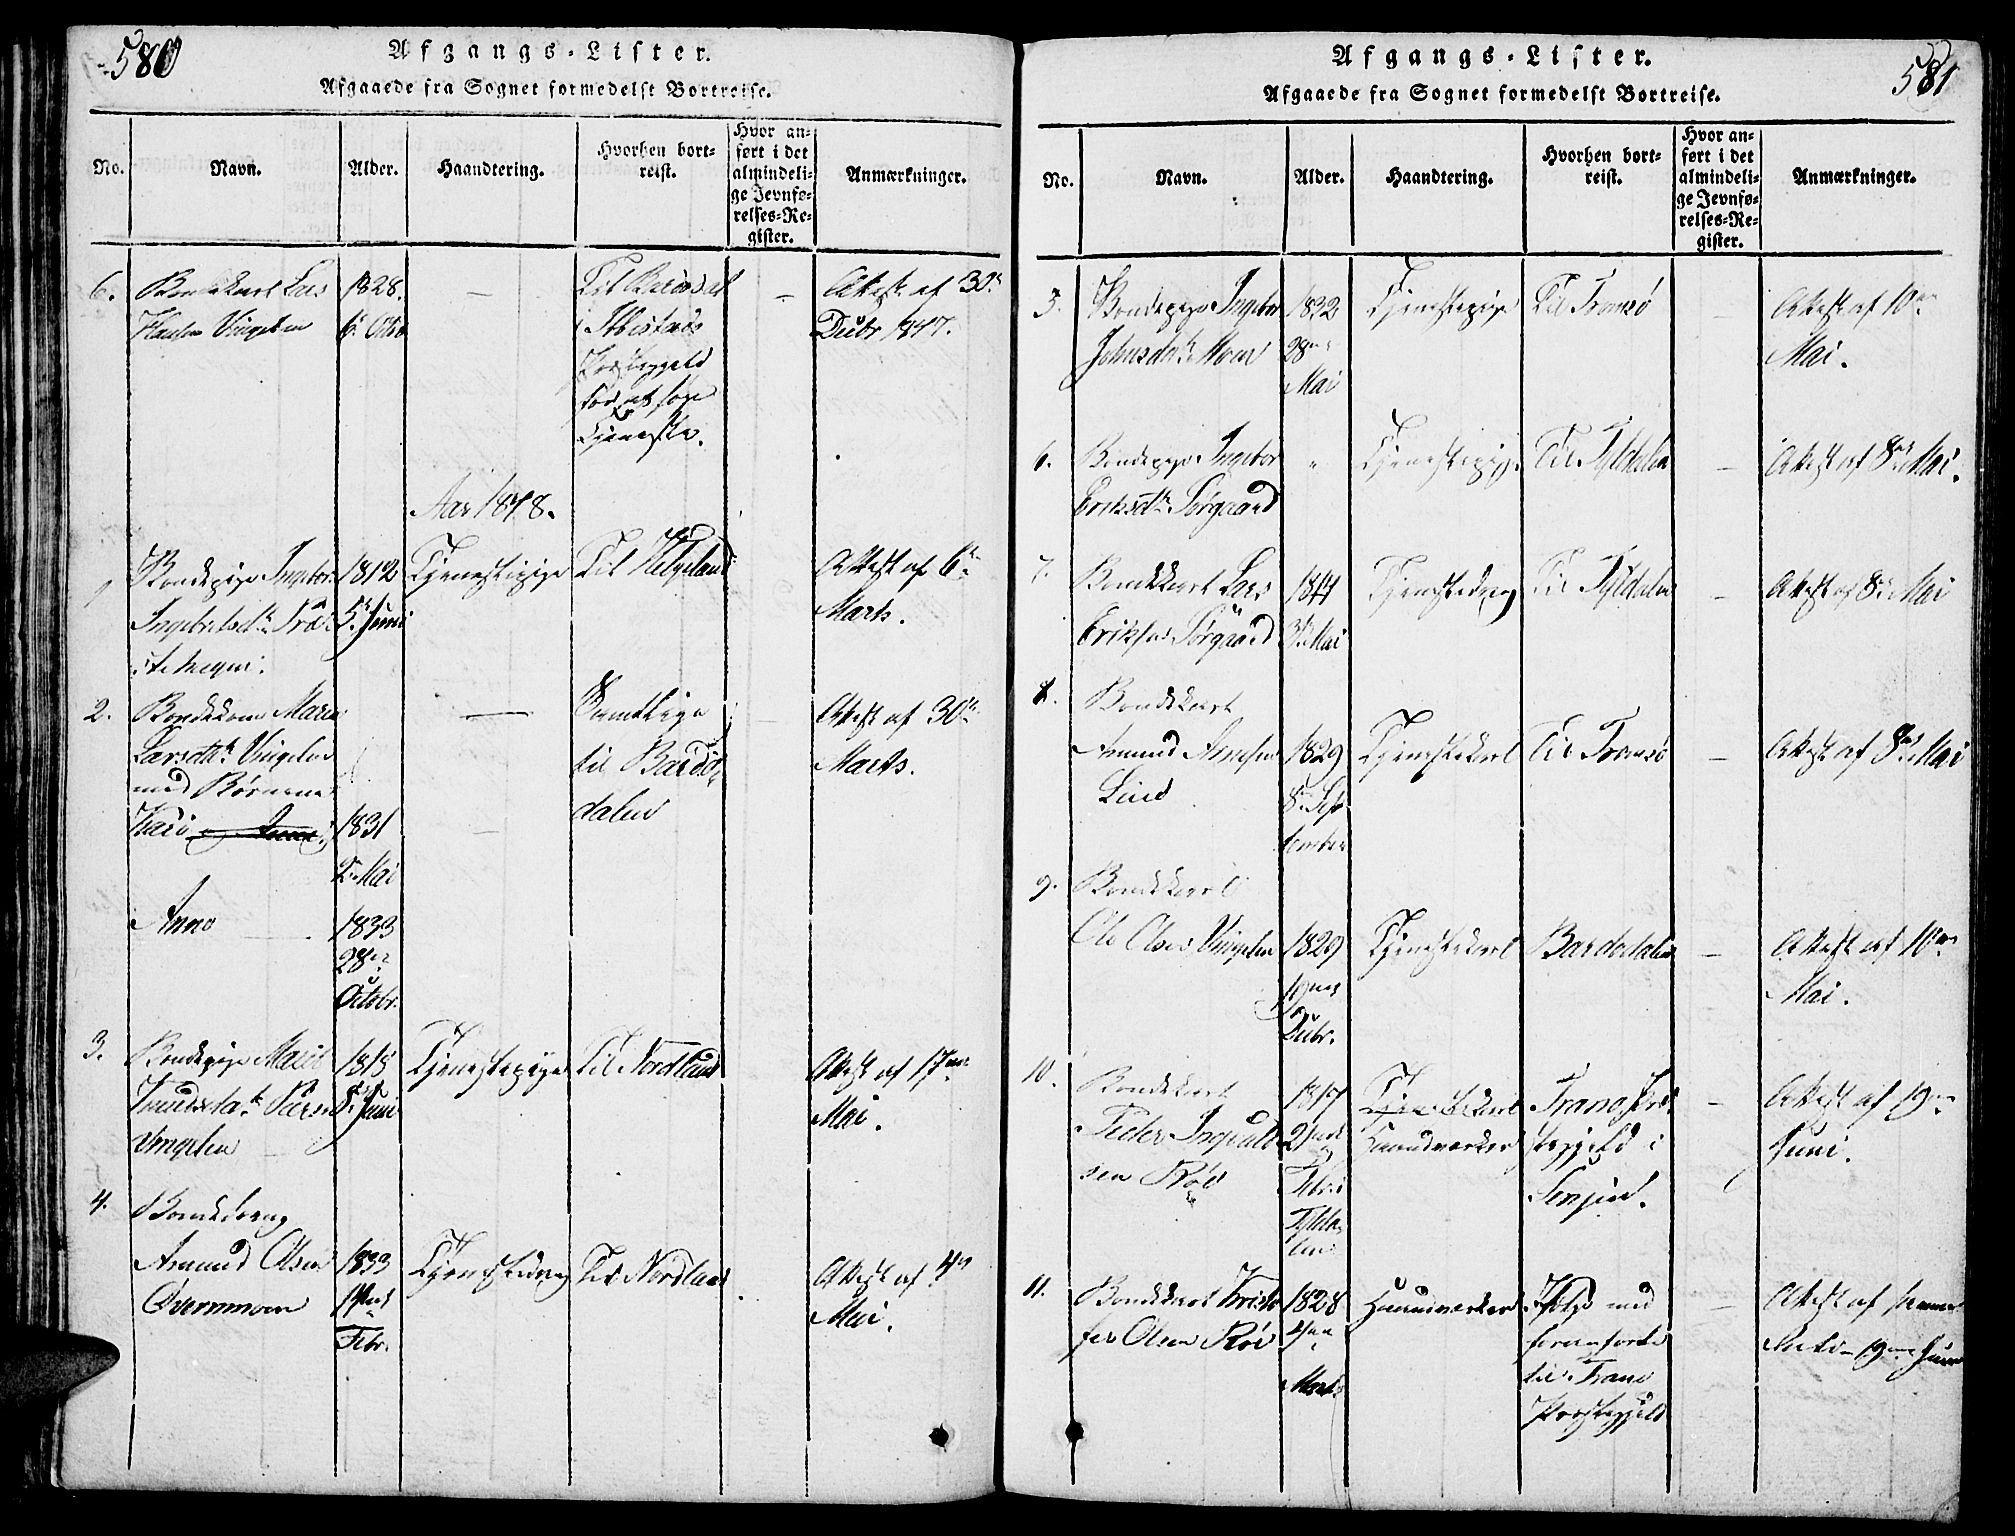 580
Afgangs-Lister.
Afgaaede fra Sognet formedelst Bortreise.
No.
Navn.
Alder.
Haandtering.
Hvorhen bort-
reist.
Hvor an-
ført i det
almindeli-
ge Jevnfø-
relses-Re-
gister.
Anmærkninger.
6.
Bondekarl Lars
Vingelen
1828.
6
—
Til
i Ibestads
Præstegjeld
for at søge
Tjeneste.
Attest af 30te
Decbr 1847.
Aar 1848.
1
Bondepige Ingebor
1812
5te Juni
Tjenestepige
Til Helgeland
Attest af 6te
Marts.
2.
Bondekone Marie
Larsdtr Vingelen
med Børnene
Kari
1831
2 Mai
Anne
1833
28de
Octobr.
—
Samtlige
til Bardo-
dalen
Attest af 30te
Marts.
3.
Bondepige Marit
Knudsdatr
Vingelen
1818
8 Juni
Tjenestepige
Til Nordland
Attest af 17de
Mai.
4.
Bondedreng
Amund Olsen
Øvermoen
1833
14de
Febr.
Tjenestedreng
Til Nordland
Attest af 4de
Mai.
581
Afgangs-Lister.
Afgaaede fra Sognet formedelst Bortreise.
No.
Navn.
Alder.
Haandtering.
Hvorhen bort-
reist.
Hvor an-
ført i det
almindeli-
ge Jevnfø-
relses-Re-
gister.
Anmærkninger.
5.
Bondepige Ingebor
Johnsdatr Moen
1832
28de
Mai
Tjenestepige
Til Tromsø
Attest af 10de
Mai.
6.
Bondepige Ingebor
Eriksdtr Sørgaard
"
Tjenestepige
Til Tyldalen
—
Attest af 8de Mai.
7.
Bondekarl Lars
Eriksen Sørgaard
Mai
Tjenestedreng
Til Tyldalen
—
Attest af 8de Mai
8.
Bondekarl
Amund Arnesen
Lien
1829
8de Sep-
tember
Tjenestekarl
Til Tromsø
—
Attest af 8de Mai
9.
Bondekarl
Ole Olsen Vingelen
1829
19de
Decbr.
Tjenestekarl
Bardodalen
—
Attest af 10de
Mai.
10.
Bondekarl
Peder Ingvald-
sen Røe
1817
2den
Febr. i
Tylda-
len
Tjenestekarl
Haandverker
Tranø Præ-
stegjeld i
Senjen.
—
Attest af 19de
Juni.
11.
Bondekarl Kristo-
fer Olsen Røe
1828
4de
Marts
Haandverker
Følge med
foranførte
til Tranø
Præstegjeld
—
Attest af samme
Dato 19de Juni